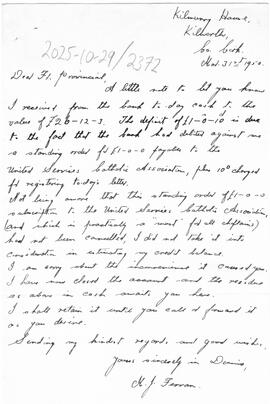 Kilmurry House,
Kilworth,
Co. Cork.
2025-10-29/2372
Mar. 31st 1950.
Dear Fr. Provincial,
A little note to let you know
I received from the bank to-day cash to the
value of £26-12-3. The deficit of £1-0-10 is due
to the fact that the bank had debited against me
a standing order for £1-0-0 payable to the
United Services Catholic Association, plus 10d charged
for registering to-day's letter.
Not being aware that this standing order of £1-0-0
subscription to the United Services Catholic Association
(and which is practically a "must" for all chaplains)
had not been cancelled, I did not take it into
consideration in estimating my credit balance.
I am sorry about the inconvenience it caused you.
I have now closed the account and the residue
as above in cash awaits you here.
I shall retain it until you call or forward it
as you desire.
Sending my kindest regards and good wishes.
Yours sincerely in Domino,
M. J.